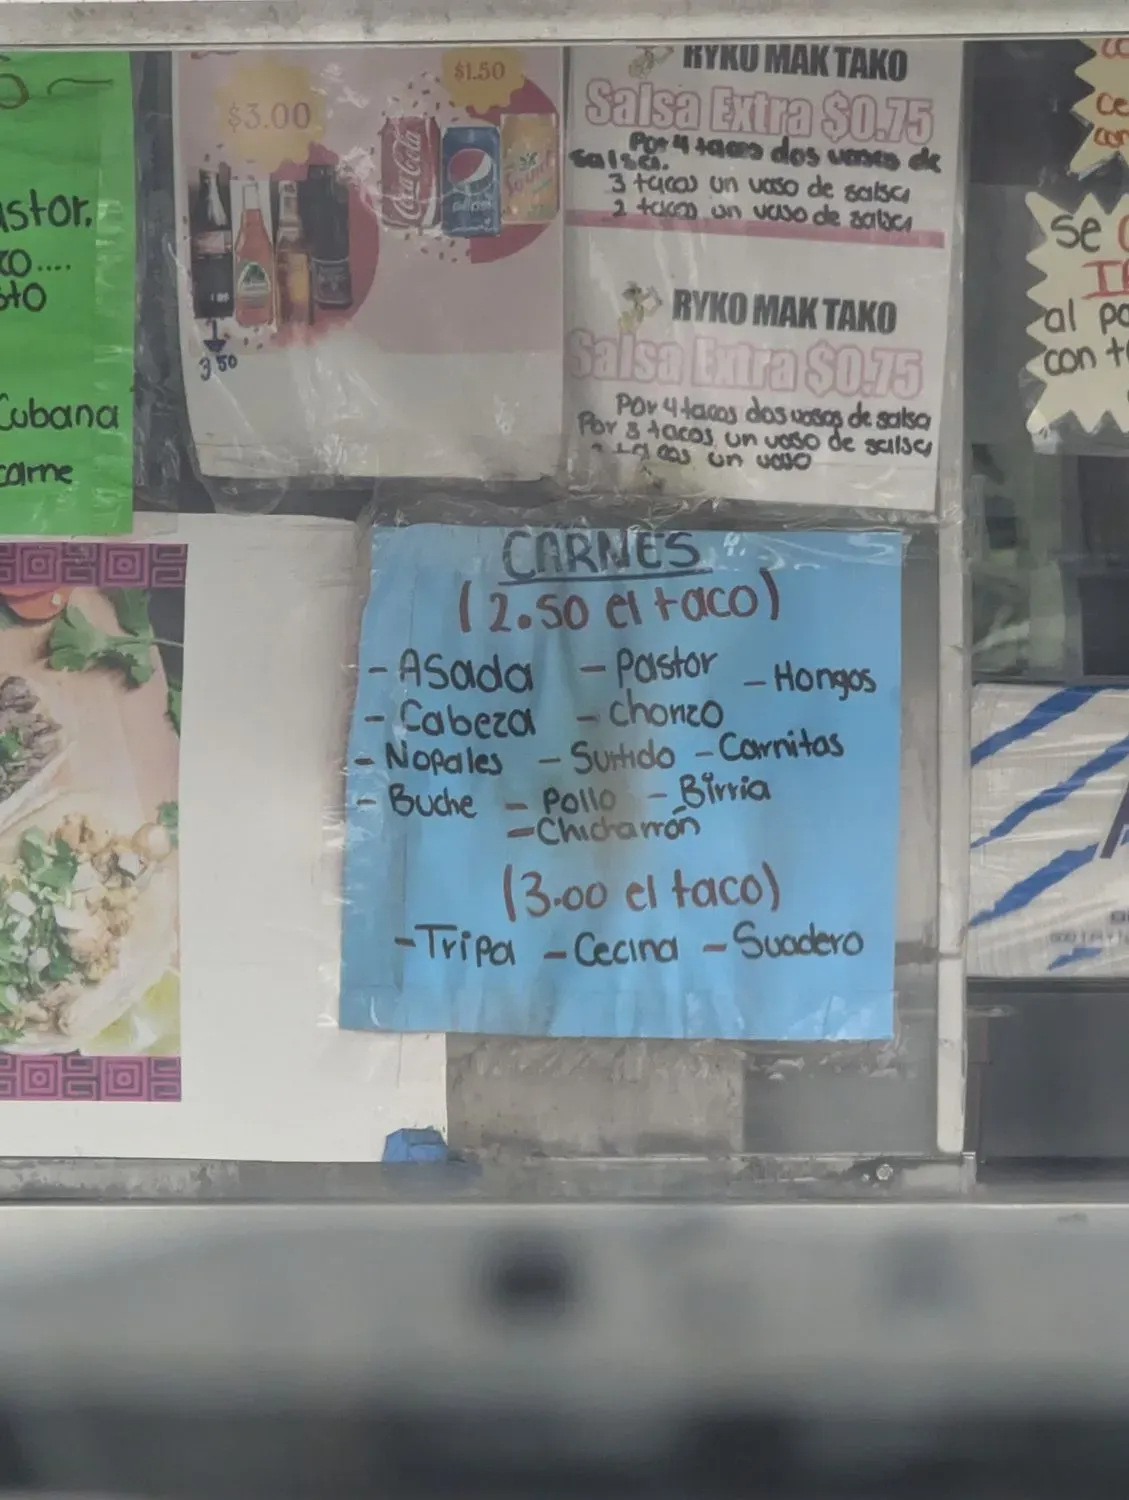 astor.
sto
Cubana
carne
$3.00
$1.50
Coca-Cola
pepsi
3.50
RYKO MAK TAKO
Salsa Extra $0.75
Por 4 tacos dos vasos de
salsa.
3 tacos un vaso de salsa
2 tacos un vaso de salsa
RYKO MAK TAKO
Salsa Extra $0.75
Por 4 tacos dos vasos de salsa
Por 3 tacos un vaso de salsa
2 tacos un vaso
Se
al
con
CARNES
(2.50 el taco)
- Asada - Pastor - Hongos
- Cabeza - chorizo
- Nopales - Surtido - Carnitas
- Buche - Pollo - Birria
- Chicharrón
(3.00 el taco)
- Tripa - Cecina - Suadero